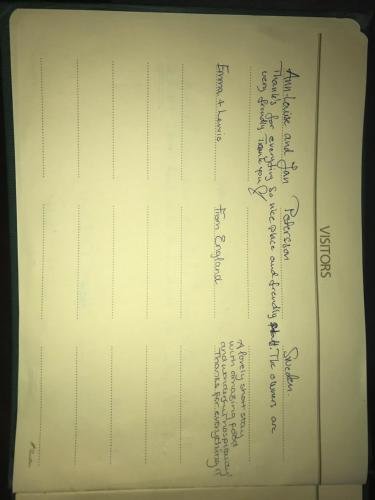 VISITORS
Ann-Louise and Jan Petersson Sweden
Thanks for everything. So nice place and frendly staff. The owners are
very frendly. Thank you
Emma + Lewis From England
A lovely short stay
with amazing food
and amazing hospitality
Thanks for everything